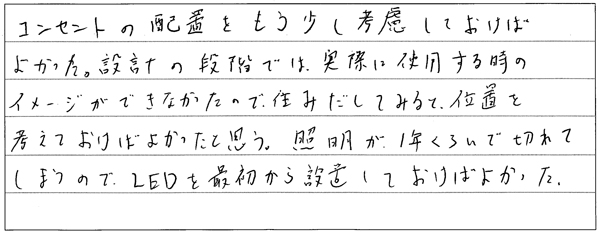 コンセントの配置をもう少し考慮しておけば
よかった。設計の段階では、実際に使用する時の
イメージができなかったので、住みだしてみると、位置を
考えておけばよかったと思う。照明が、1年くらいで切れて
しまうので、LEDを最初から設置しておけばよかった。